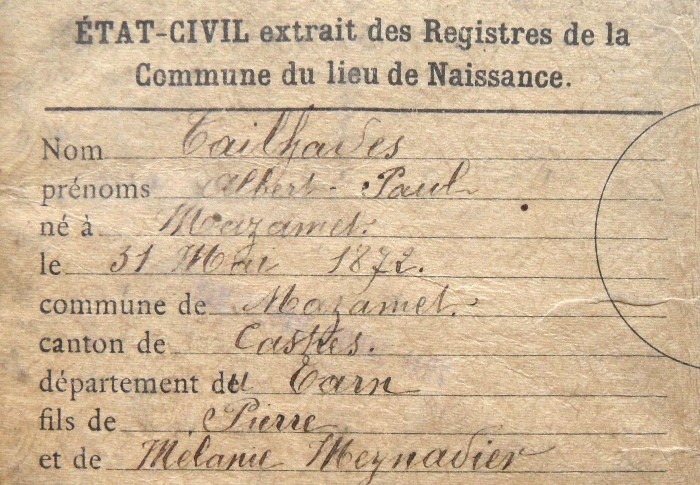 ÉTAT-CIVIL extrait des Registres de la
Commune du lieu de Naissance.
Nom Tailhades
prénoms Albert - Paul
né à Mazamet.
le 31 Mai 1872.
commune de Mazamet.
canton de Castres.
département du Tarn
fils de Pierre
et de Mélanie Meynadier